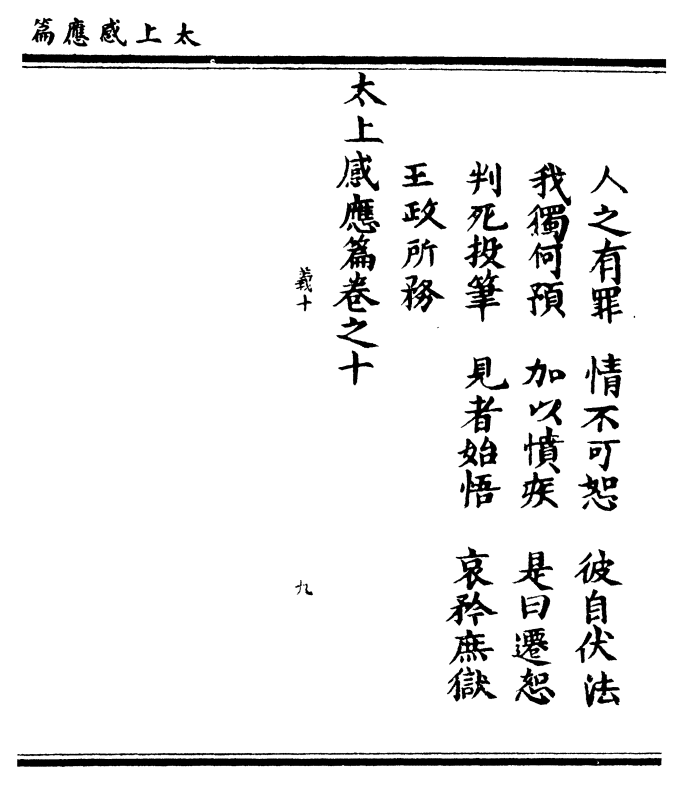 太上感應篇
人之有罪　情不可恕　彼自伏法
我獨何預　加以憤疾　是曰遷怒
判死投筆　見者始悟　哀矜庶獄
王政所務
太上感應篇卷之十
義十　九